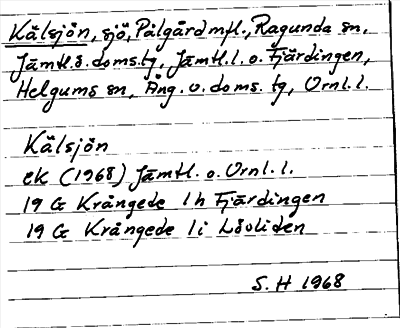 Kälsjön, sjö, Pålgård m fl., Ragunda sn,
Jämtl.ö. doms.tg, Jämtl.l. o. Fjärdingen,
Helgums sn, Ång. v. doms. tg, Vrnl. l.
Kälsjön
ek (1968) Jämtl. o. Vrnl. l.
19 G Krångede 1 h Fjärdingen
19 G Krångede 1 i Låoliden
S. H 1968